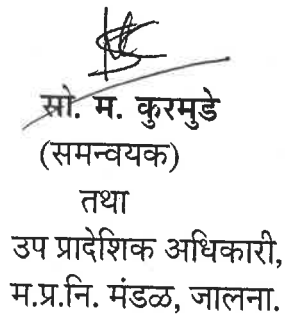 सो. म. कुरमुडे
(समन्वयक)
तथा
उप प्रादेशिक अधिकारी,
म.प्र.नि. मंडळ, जालना.